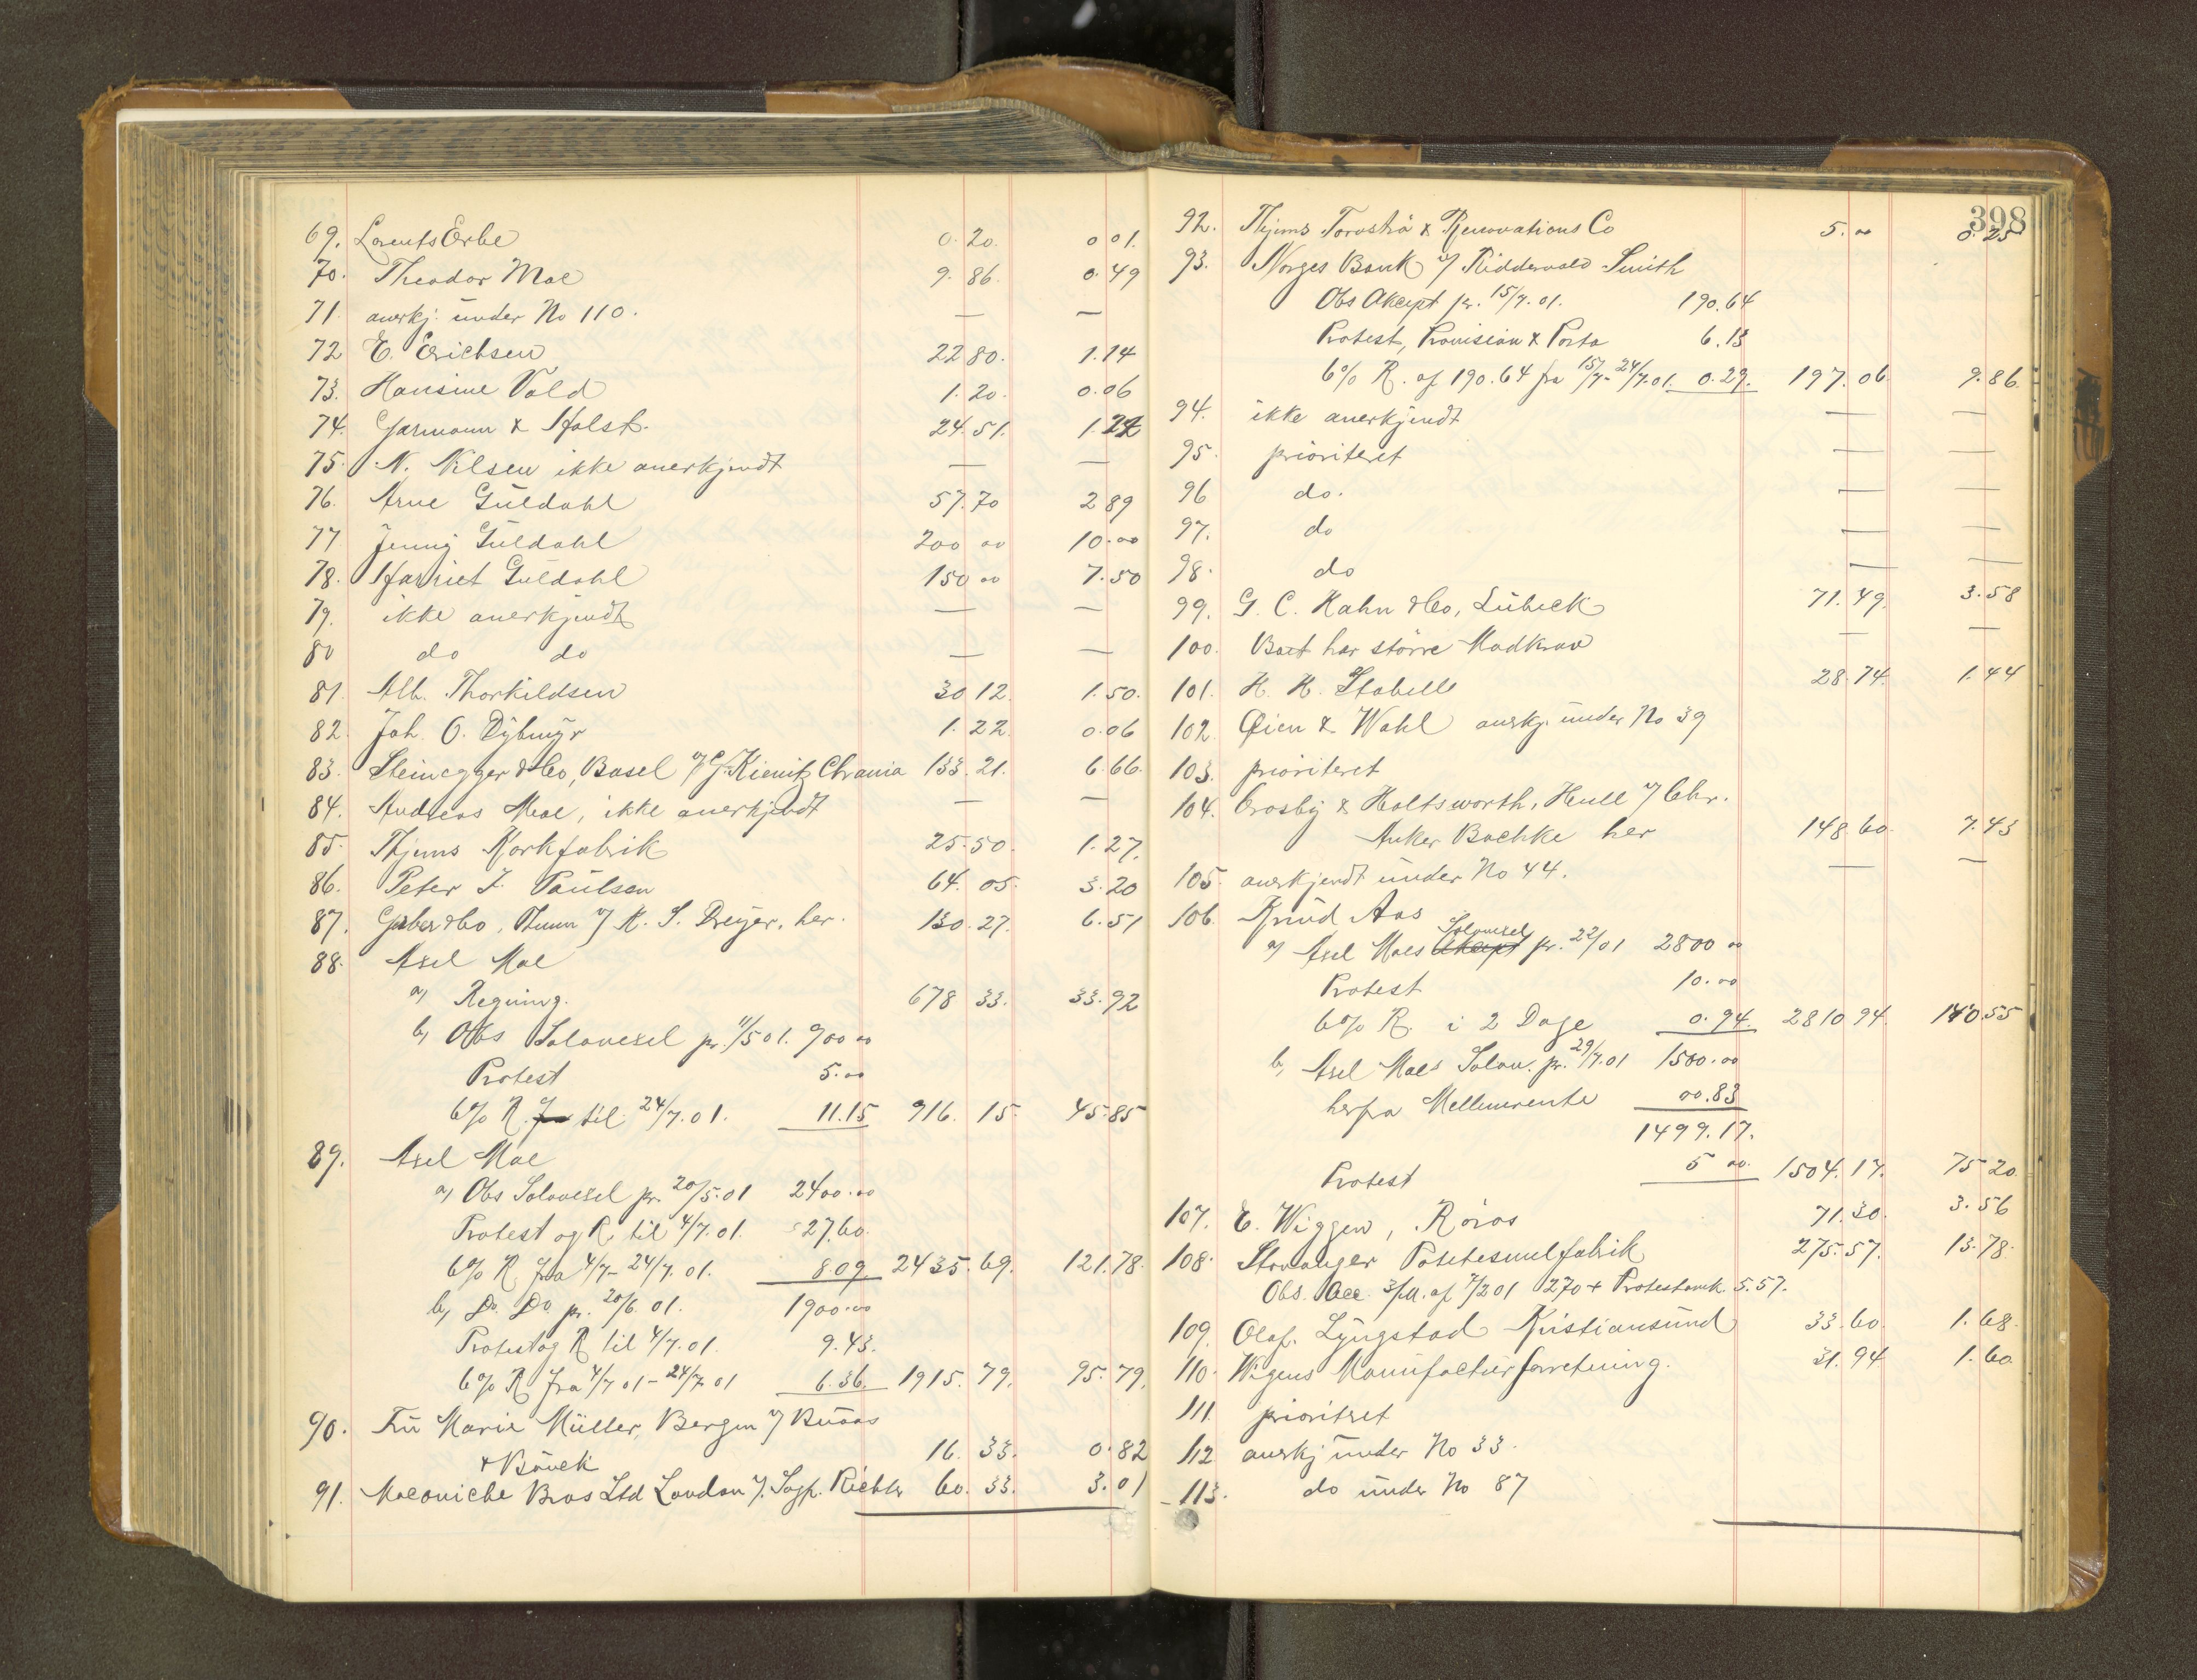 69. Lorents Erbe 0. 20. 0 01.
70. Theodor Moe 9. 86. 0. 49
71. anerkj. under No 110. — —
72 E. Erichsen 22 80. 1. 14
73. Hansine Vold 1. 20. 0. 06
74. Garmann & Holst. 24. 51. 1. 22
75. N. Nilsen ikke anerkjendt — —
76. Arne Guldahl 57. 70 2 89
77 Jenny Guldahl 200 00 10. 00
78. Harriet Guldahl 150 00 7. 50
79. ikke anerkjendt — —
80 do do — —
81. Alb. Thorkildsen 30 12. 1. 50.
82. Joh. O. Dybmyr 1. 22. 0. 06
83. Steinegger & Co, Basel v/ C. J. Kienitz Chrania 133. 21. 6. 66.
84. Andreas Moe, ikke anerkjendt — —
85. Thjems Korkfabrik 25. 50. 1. 27.
86. Peter I. Paulsen 64. 05. 3. 20
87. & Co, v/ K. S. Dreyer, her. 130. 27. 6. 51
88. Axel Moe
a) Regning. 678 33. 33. 92
b) Obs Solavexel pr. 11/5 01. 900 00
Protest 5. 00
6% R. fra til 24/7. 01. 11. 15 916. 15. 45. 85
89. Axel Moe
a) Obs Solavexel pr. 20/5. 01 2400. 00
Protest og R. til 4/7. 01. 27. 60.
6% R. fra 4/7 - 24/7. 01. 8. 09 2435. 69. 121. 78.
b) Do. Do. pr. 20/6. 01. 1900. 00
Protest og R til 4/7. 01. 9. 43.
6% R fra 4/7 01 - 24/7 01 6. 36. 1915. 79. 95. 79.
90. Fru Marie Müller, Bergen v/ Buaas
& 16. 33. 0. 82
91. Maconichie Bros Ltd London v/ Sagf. Richter 60. 33. 3. 01
398
92. Thjems Torvströ & Renovations Co 5. 00 0. 25
93. Norges Bank v/ Riddervold Smith
Obs Akcept pr. 15/7. 01. 190. 64
Protest, Provision & Porto 6. 13
6% R. af 190. 64 fra 15/7 - 24/7. 01. 0. 29. 197. 06 9. 86.
94. ikke anerkjendt — —
95. prioriteret — —
96 do. — —
97. do — —
98. do — —
99. G. C. Hahn & Co, Lübeck 71. 49. 3. 58
100. Boet har större Modkrav — —
101. H. H. Stabell 28. 74. 1. 44
102. Øien & Wahl anrkj. under No 39
103. prioriteret
104. Crosby & Holtsworth, Hull v/ Chr.
Anker Bachke her 148. 60. 7. 43
105. anrkjendt under No 44. — —
106. Knud Aas
a) Axel Moes Akcept Solavexel pr. 22/ 01 2800 00
Protest 10. 00
6% R. i 2 Dage 0. 94. 2810 94. 140 55
b, Axel Moes Solav. pr. 29/7. 01 1500. 00
herfra Mellemrente 00. 83
1499. 17.
Protest 5 00. 1504. 17. 75 20.
107. E. Wiggen, Röros 71. 30. 3. 56
108. Stavanger 275. 57. 13. 78.
Obs. Acc. 3/m. af 7/2 01 270 + Protestomk. 5. 57.
109. Olaf. Lyngstad Kristiansund 33. 60. 1. 68.
110. Wigens Manufacturforretning. 31. 94 1. 60
111. prioritret
112 anerkj under No 33.
113. do under No 87